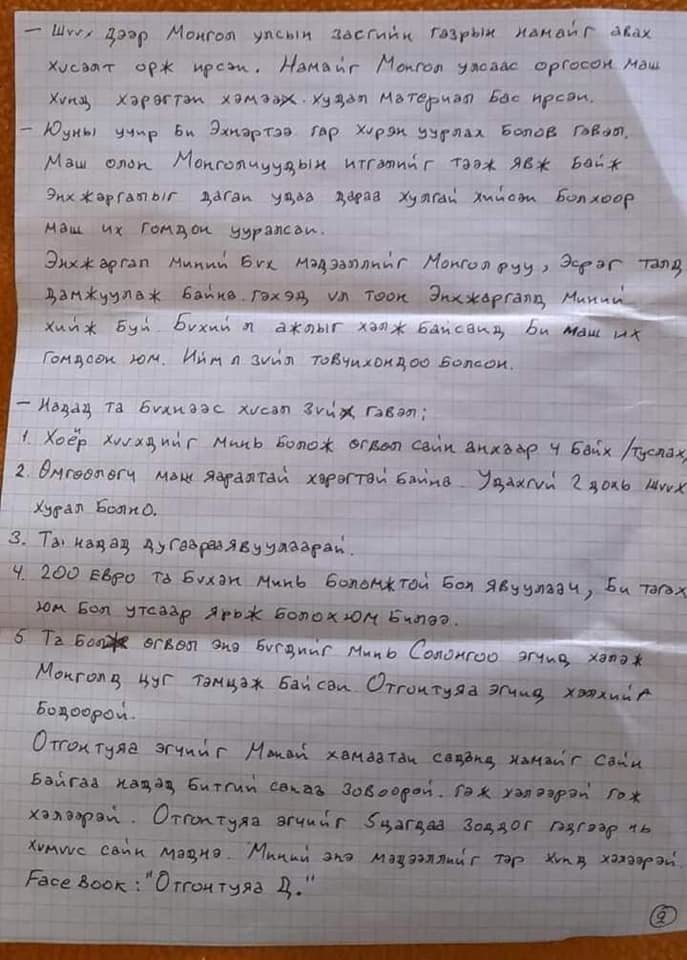 - Шvvх дээр Монгол улсын засгийн газрын намайг авах
хvсэлт орж ирсэн. Намайг Монгол улсаас оргосон маш
хvнд хэрэгтэн хэмээж. худал материал бас ирсэн.
- Юуны учир би Эхнэртээ гар хvрэн уурлах болов гэвэл.
Маш олон Монголчуудын итгэлийг тээж явж байж
Энхжаргалыг даган удаа дараа хулгай хийсэн болхоор
маш их гомдон ууралсан.
Энхжаргал миний бvх мэдээллийг Монгол руу, Эсрэг талд
дамжуулаж байна. гэхэд vл тоон Энхжаргалд миний
хийж буй. Бvхий л ажлыг хэлж байсанд би маш их
гомдсон юм. Ийм л зvйл товчихондоо болсон.
- Надад та бvхнээс хvсэл зvйл гэвэл;
1. Хоёр хvvхдийг минь болож өгвөл сайн анхаар ч байх /туслах,
2. Өмгөөлөгч маш яаралтай хэрэгтэй байна. Удахгvй 2 дохь шvvх
хурал болно.
3. Та надад дугаараа явуулаарай.
4. 200 евро та бvхэн минь боломжтой бол явуулаач, би тэгэх
юм бол утсаар ярьж болох юм билээ.
5. Та болж өгвөл энэ бvгдийг минь Солонгоо эгчид хэлэж
Монголд цуг тэмцэж байсан. Отгонтуяа эгчид хэлхийг
бодоорой.
Отгонтуяа эгчийг Манай хамаатан саданд намайг сайн
байгаа надад битгий санаа зовоорой. гэж хэлээрэй гэж
хэлээрэй. Отгонтуяа эгчийг 5цагдаа зоддог гэдгээр нь
хvмvvс сайн мэднэ. Миний энэ мэдээллийг тэр хvнд хэлээрэй.
Face Book: "Отгонтуяа Д."
2